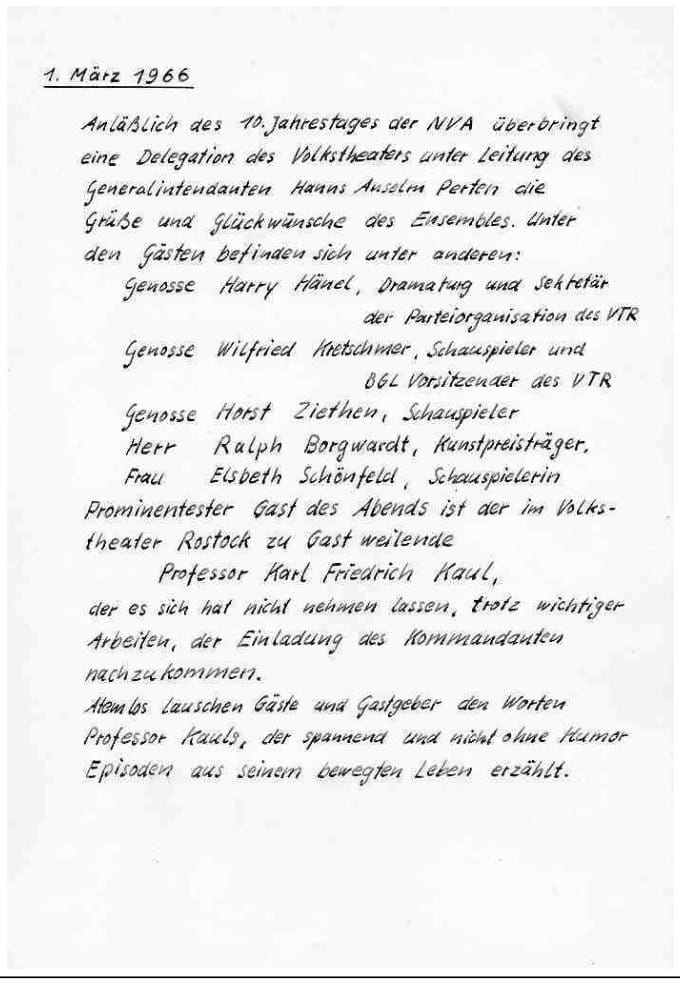 1. März 1966
Anläßlich des 10. Jahrestages der NVA überbringt
eine Delegation des Volkstheaters unter Leitung des
Generalintendanten Hanns Anselm Perten die
Grüße und Glückwünsche des Ensembles. Unter
den Gästen befinden sich unter anderen:
Genosse Harry Hänel, Dramaturg und Sekretär
der Parteiorganisation des VTR
Genosse Wilfried Kretschmer, Schauspieler und
BGL Vorsitzender des VTR
Genosse Horst Ziethen, Schauspieler
Herr Ralph Borgwardt, Kunstpreisträger,
Frau Elsbeth Schönfeld, Schauspielerin
Prominentester Gast des Abends ist der im Volks-
theater Rostock zu Gast weilende
Professor Karl Friedrich Kaul,
der es sich hat nicht nehmen lassen, trotz wichtiger
Arbeiten, der Einladung des Kommandanten
nachzukommen.
Atemlos lauschen Gäste und Gastgeber den Worten
Professor Kauls, der spannend und nicht ohne Humor
Episoden aus seinem bewegten Leben erzählt.